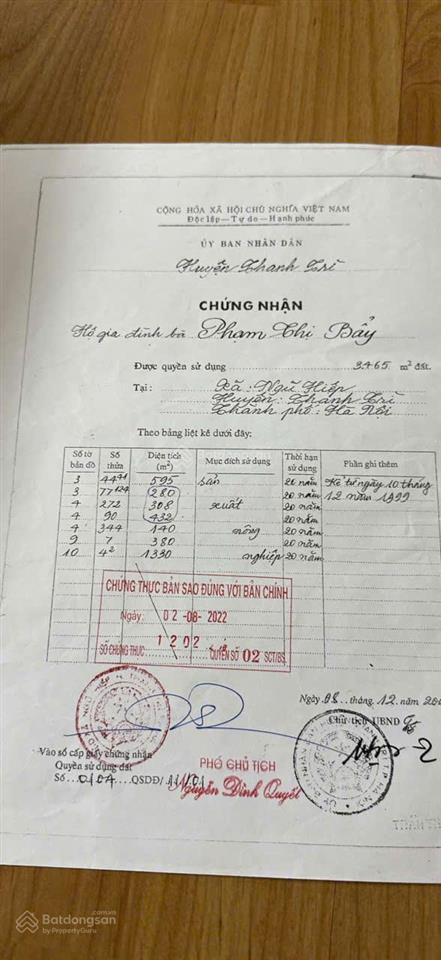 CỘNG HÒA XÃ HỘI CHỦ NGHĨA VIỆT NAM
Độc lập—Tự do—Hạnh phúc
ỦY BAN NHÂN DÂN
Huyện Thanh Trì
CHỨNG NHẬN
Hộ gia đình bà Phạm Thị Bẩy
Được quyền sử dụng 3465 m² đất
Tại: Xã: Ngũ Hiệp
Huyện: Thanh Trì
Thành phố: Hà Nội
Theo bảng liệt kê dưới đây:
Số tờ bản đồ Số thửa Diện tích (m²) Mục đích sử dụng Thời hạn sử dụng Phần ghi thêm
3 44 595 sản 20 năm Kể từ ngày 10 tháng
3 77 280 20 năm 12 năm 1999
4 272 308 xuất 20 năm
4 90 432 20 năm
4 344 140 nông 20 năm
9 7 380 20 năm
10 4² 1330 nghiệp 20 năm
CHỨNG THỰC BẢN SAO ĐÚNG VỚI BẢN CHÍNH
Ngày: 02-08-2022
SỐ CHỨNG THỰC 1202 QUYỂN SỐ 02 SCT/BS
Ngày 08 tháng 12 năm
Chủ tịch UBND
Vào sổ cấp giấy chứng nhận
Quyền sử dụng đất
Số 0104 QSDĐ/
PHÓ CHỦ TỊCH
Nguyễn Đình Quyết
Batdongsan
.com.vn
by PropertyGuru